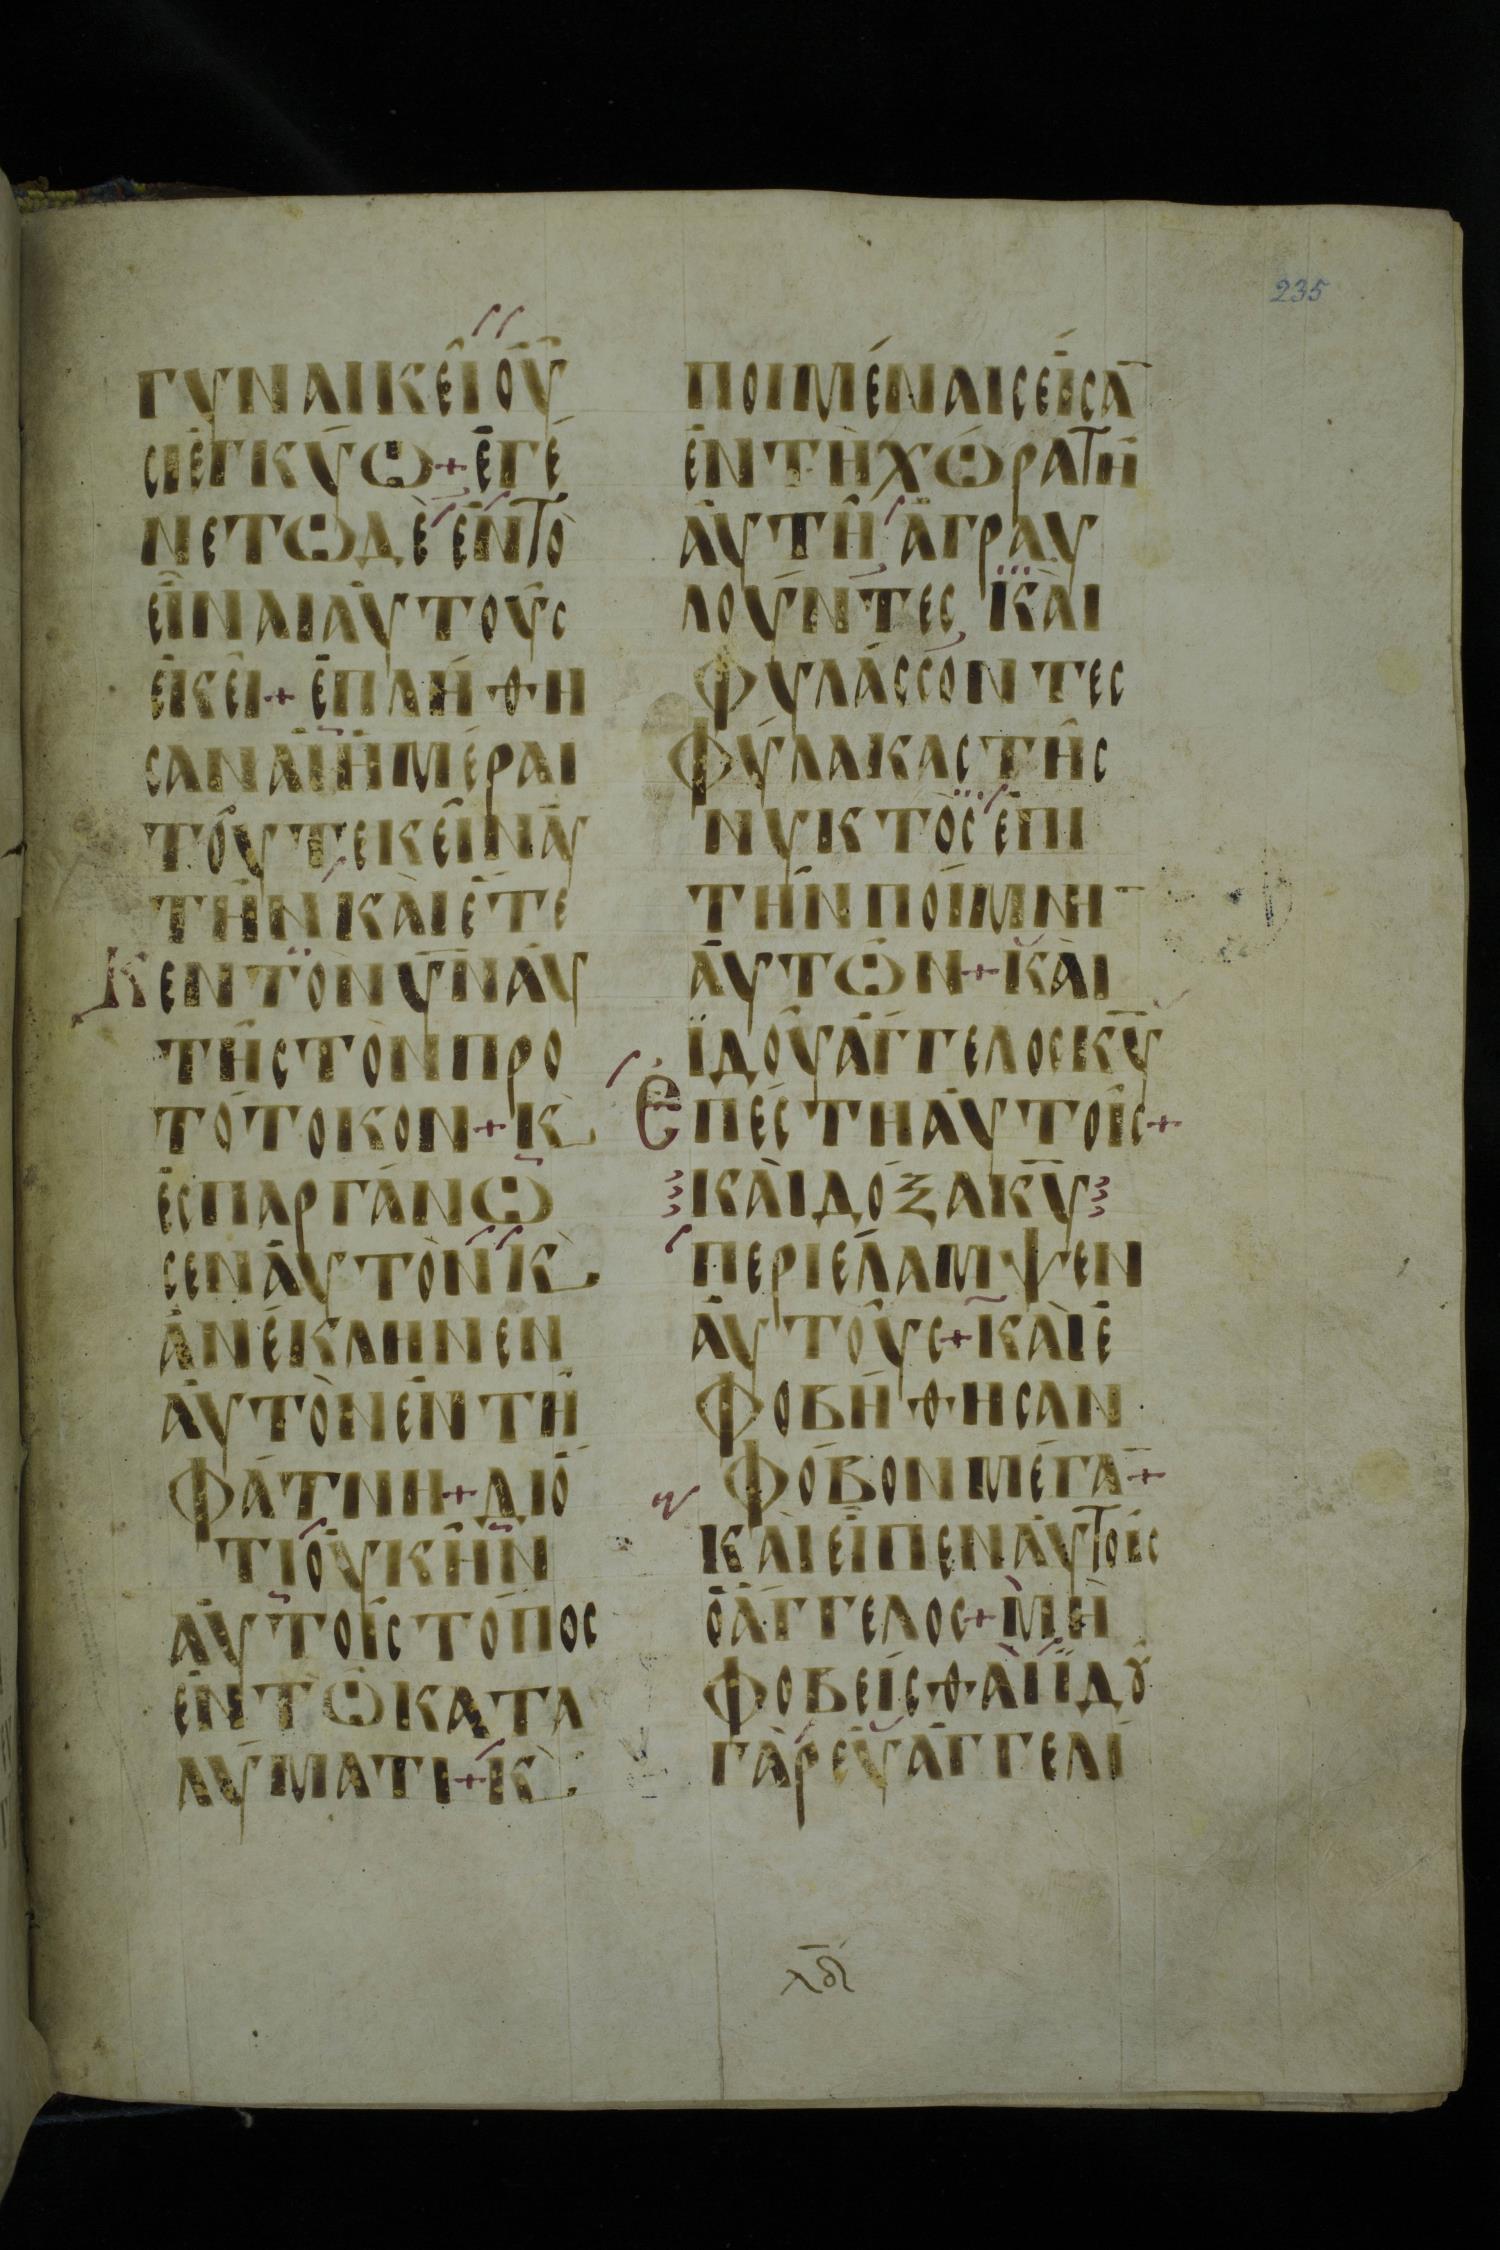 235
ΓΥΝΑΙΚΕΙΟΥ
ΣΙΕΓΚΥΩ+ΕΓΕ
ΝΕΤΩΔΕΕΝΤΟ
ΕΙΝΑΙΑΥΤΟΥΣ
ΕΚΕΙ+ΕΠΛΗΘΗ
ΣΑΝΑΙΗΜΕΡΑΙ
ΤΟΥΤΕΚΕΙΝΑΥ
ΤΗΝΚΑΙΕΤΕ
ΚΕΝΤΟΝΥΝΑΥ
ΤΗΣΤΟΝΠΡΟ
ΤΟΤΟΚΟΝ+Κ
ΕΣΠΑΡΓΑΝΩ
ΣΕΝΑΥΤΟΝΚ
ΑΝΕΚΛΗΝΕΝ
ΑΥΤΟΝΕΝΤΗ
ΦΑΤΝΗ+ΔΙΟ
ΤΙΟΥΚΗΝ
ΑΥΤΟΙΣΤΟΠΟΣ
ΕΝΤΩΚΑΤΑ
ΛΥΜΑΤΙ+Κ
ΠΟΙΜΕΝΑΙΣΕΙΣΑ̅
ΕΝΤΗΧΩΡΑΤΗ
ΑΥΤΗΑΓΡΑΥ
ΛΟΥΝΤΕΣΚΑΙ
ΦΥΛΑΣΣΟΝΤΕΣ
ΦΥΛΑΚΑΣΤΗΣ
ΝΥΚΤΟΣΕΠΙ
ΤΗΝΠΟΙΜΝΗ̅
ΑΥΤΩΝ+ΚΑΙ
ΪΔΟΥΑΓΓΕΛΟΣΚ̅Υ̅
ΕΠΕΣΤΗΑΥΤΟΙΣ+
ΚΑΙΔΟΞΑΚ̅Υ̅
ΠΕΡΙΕΛΑΜΨΕΝ
ΑΥΤΟΥΣ+ΚΑΙΕ
ΦΟΒΗΘΗΣΑΝ
ΦΟΒΟΝΜΕΓΑ̅+
ΚΑΙΕΙΠΕΝΑΥΤΟΙΣ
ΟΑΓΓΕΛΟΣ+ΜΗ
ΦΟΒΕΙΣΘΑΙΪΔΟΥ
ΓΑΡΕΥΑΓΓΕΛΙ